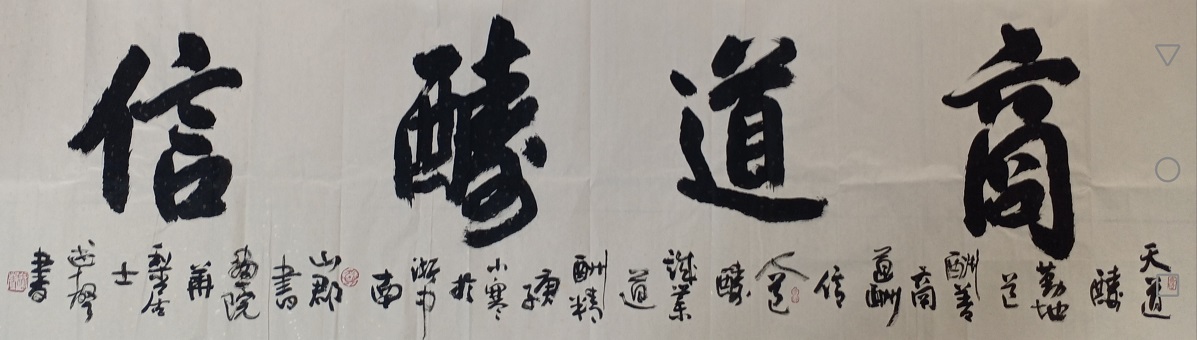 商道醻信
天道醻勤地道酬善商道酬信人道醻誠業道酬精庚子小寒於浙中南山郡書画院居士書